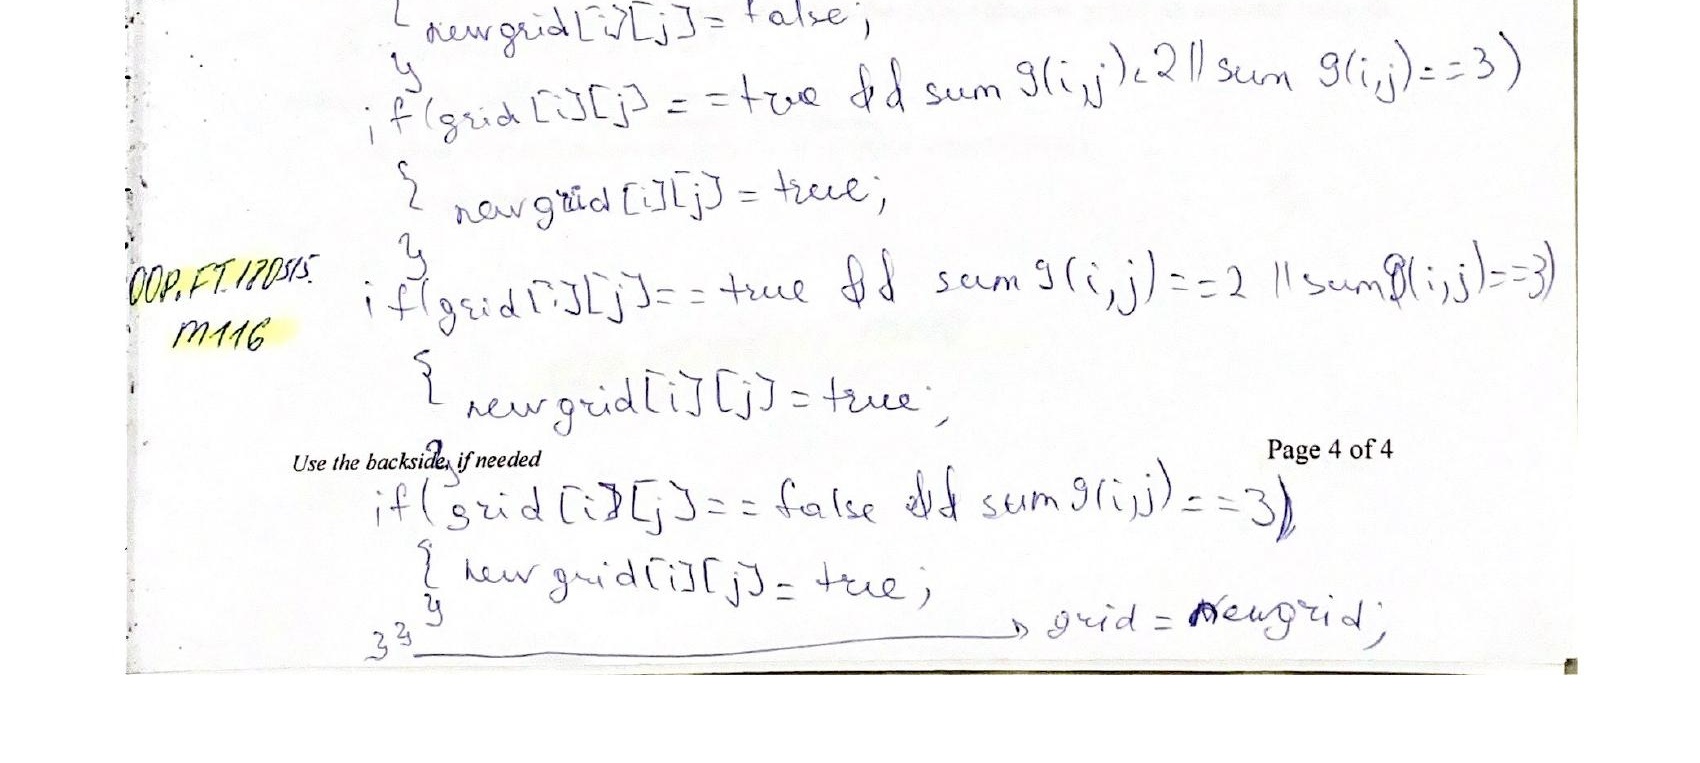 { newgrid[i][j] = false;
}
if(grid[i][j] == true && sum g(i,j)<2 || sum g(i,j)==3)
{ newgrid[i][j] = true;
}
OOP.FT.170515.
M116
if(grid[i][j]== true && sum g(i,j)==2 || sum g(i,j)==3)
{ newgrid[i][j] = true;
}
Use the backside, if needed
Page 4 of 4
if(grid[i][j]== false && sum g(i,j)==3)
{ newgrid[i][j] = true;
}
}} → grid = newgrid;